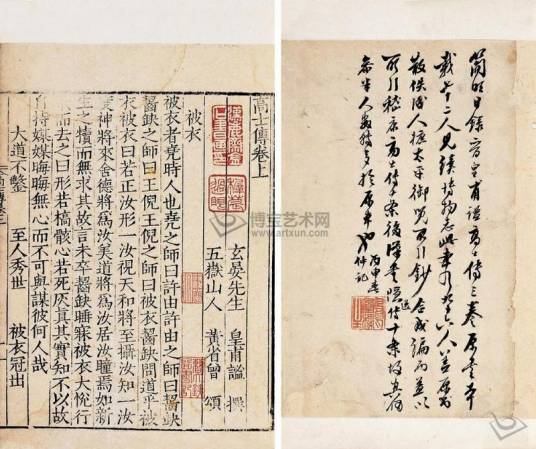 高士傳卷上
玄晏先生 皇甫謐 撰
五嶽山人 黃省曾 頌
被衣
被衣者堯時人也堯之師曰許由許由之師曰齧缺
齧缺之師曰王倪王倪之師曰被衣齧缺問道乎被
衣被衣曰若正汝形一汝視天和將至攝汝知一汝
度神將來舍德將為汝美道將為汝居汝瞳焉如新
生之犢而無求其故言未卒齧缺睡寐被衣大悅行
歌而去之曰形若槁骸心若死灰真其實知不以故
自持媒媒晦晦無心而不可與謀彼何人哉
大道不繁 至人秀世 被衣冠出
簡明目錄晉皇甫謐高士傳三卷原書本
載七十二人見續博物志此本乃九十六人蓋原書
散佚後人摭太平御覽所引鈔合成編而益以
所引嵇康高士傳 後漢書 十餘條故真偽
參半人數轉多於原本也 丙申 記
博宝艺术网
www.artxun.com